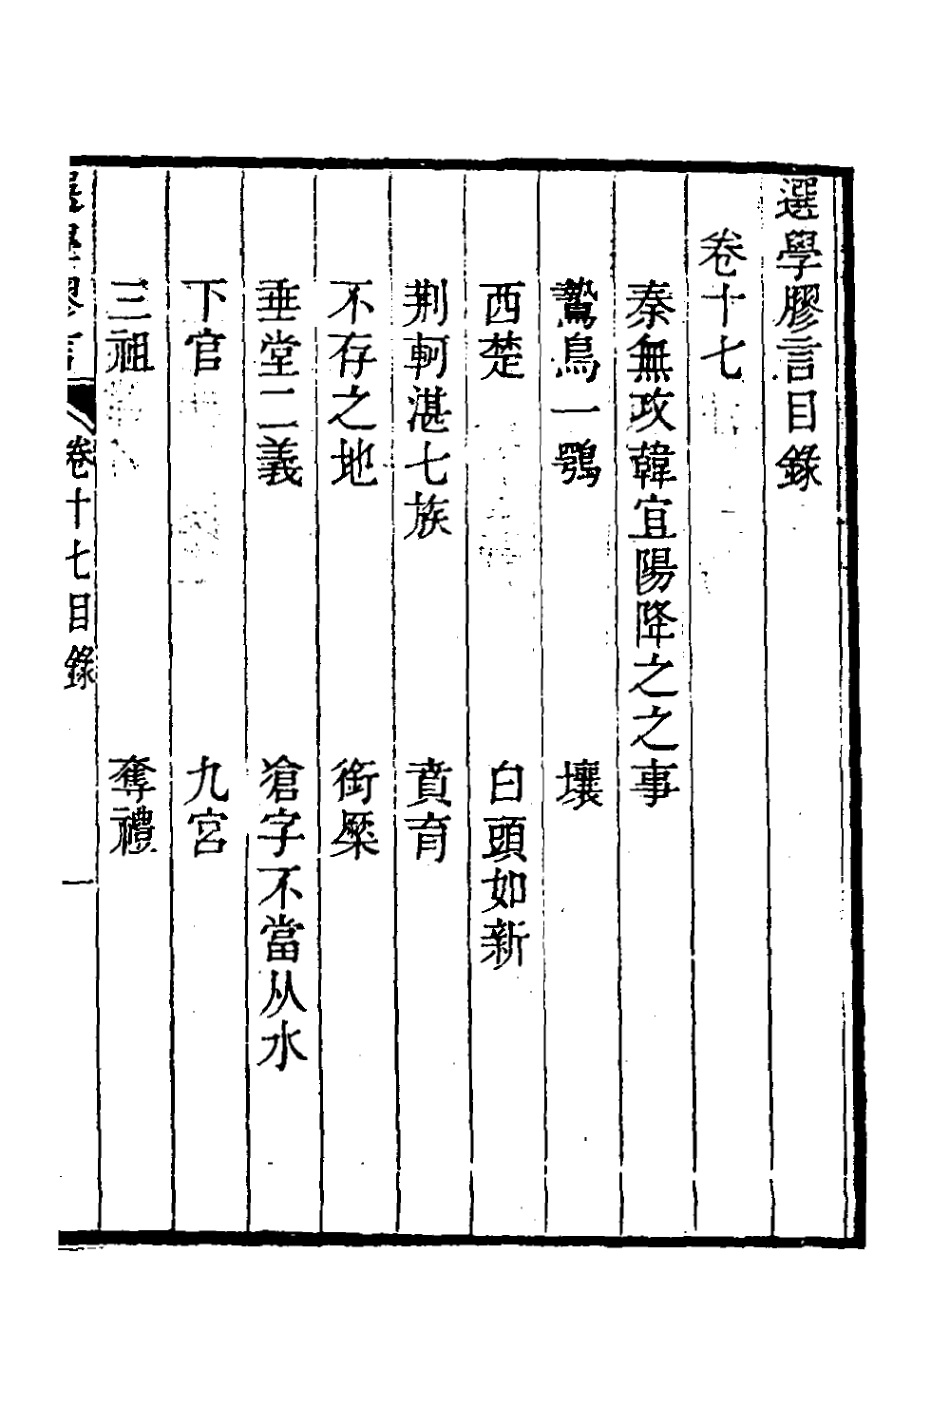 選學膠言目錄
卷十七
秦無攻韓宜陽降之之事
鷙鳥一鶚　壤
西楚　白頭如新
荆軻湛七族　賁育
不存之地　銜橜
垂堂二義　滄字不當从水
下官　九宮
三祖　奪禮
選學膠言　卷十七目錄　一